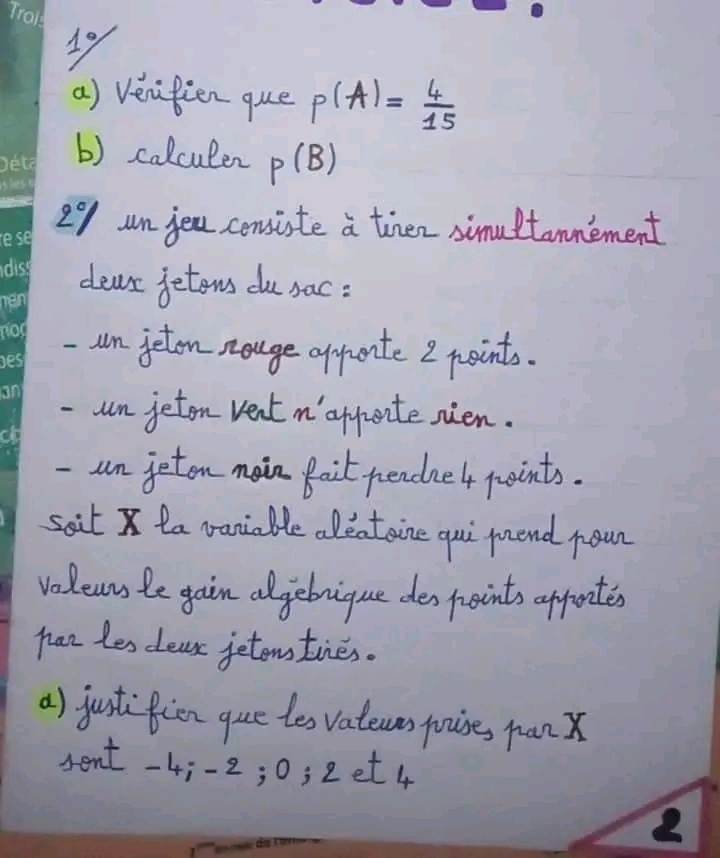 Trois
1°/
a) Vérifier que p(A) = 4/15
b) calculer p(B)
2°/ un jeu consiste à tirer simultannément
deux jetons du sac :
- un jeton rouge apporte 2 points.
- un jeton vert n'apporte rien.
- un jeton noir fait perdre 4 points.
soit X la variable aléatoire qui prend pour
valeurs le gain algébrique des points apportés
par les deux jetons tirés.
a) justifier que les valeurs prises par X
sont -4; -2 ; 0 ; 2 et 4
2